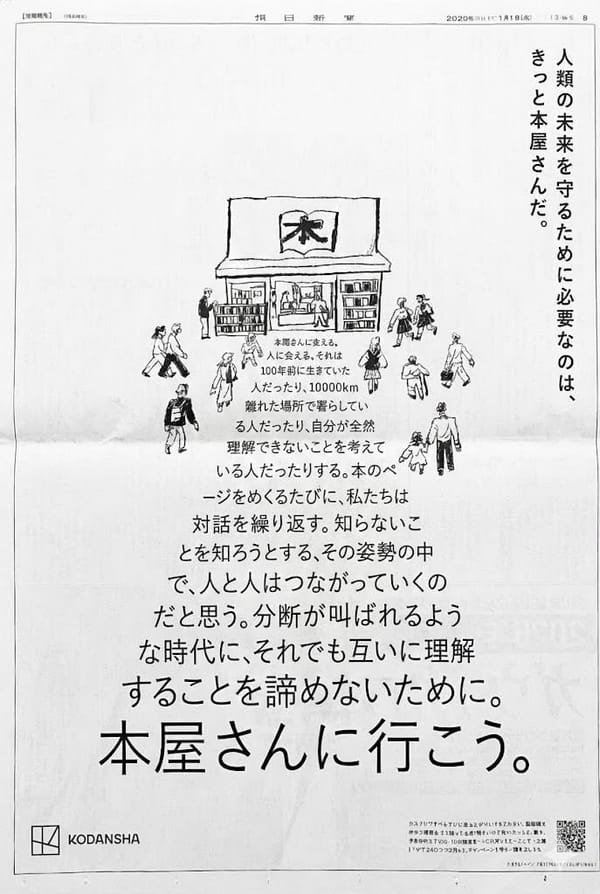 2020
1月1日(水)
8
人類の未来を守るために必要なのは、
きっと本屋さんだ。
本
人に会える。それは
100年前に生きていた
人だったり、10000km
離れた場所で暮らしてい
る人だったり、自分が全然
理解できないことを考えて
いる人だったりする。本のペ
ージをめくるたびに、私たちは
対話を繰り返す。知らないこ
とを知ろうとする、その姿勢の中
で、人と人はつながっていくの
だと思う。分断が叫ばれるよう
な時代に、それでも互いに理解
することを諦めないために。
本屋さんに行こう。
KODANSHA